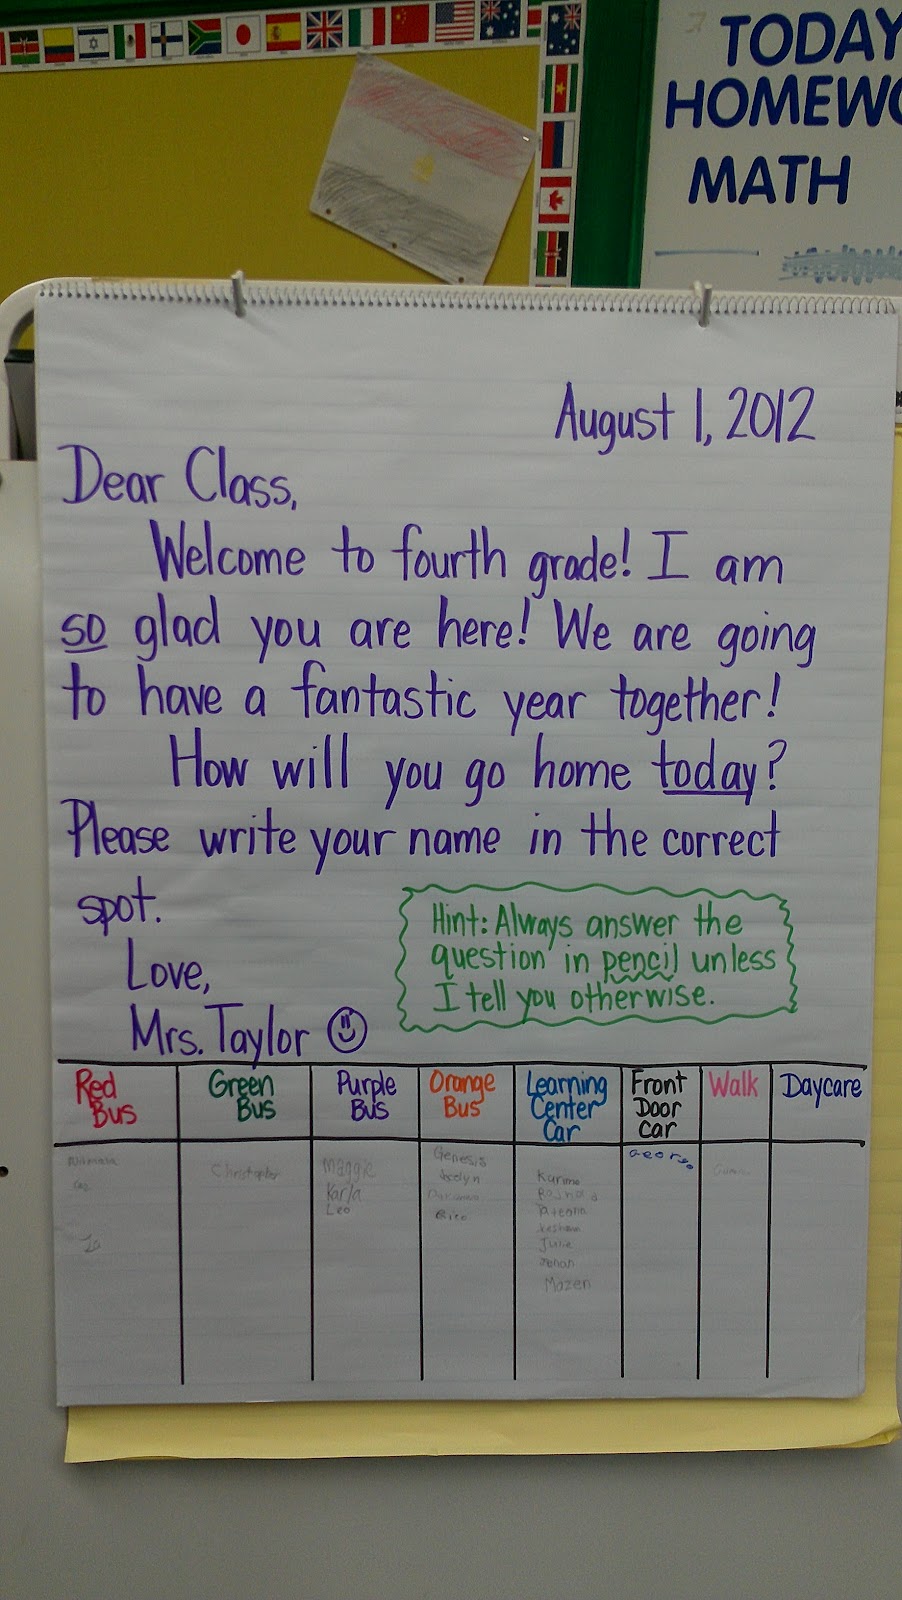 TODAY
HOMEWO
MATH
August 1, 2012
Dear Class,
Welcome to fourth grade! I am
so glad you are here! We are going
to have a fantastic year together!
How will you go home today?
Please write your name in the correct
spot.
Love,
Mrs. Taylor
Hint: Always answer the
question in pencil unless
I tell you otherwise.
Red Bus
Green Bus
Purple Bus
Orange Bus
Learning Center Car
Front Door Car
Walk
Daycare
Christopher
Maggie
Karla
Leo
Genesis
Jocelyn
Karime
Julie
Johan
Mazen